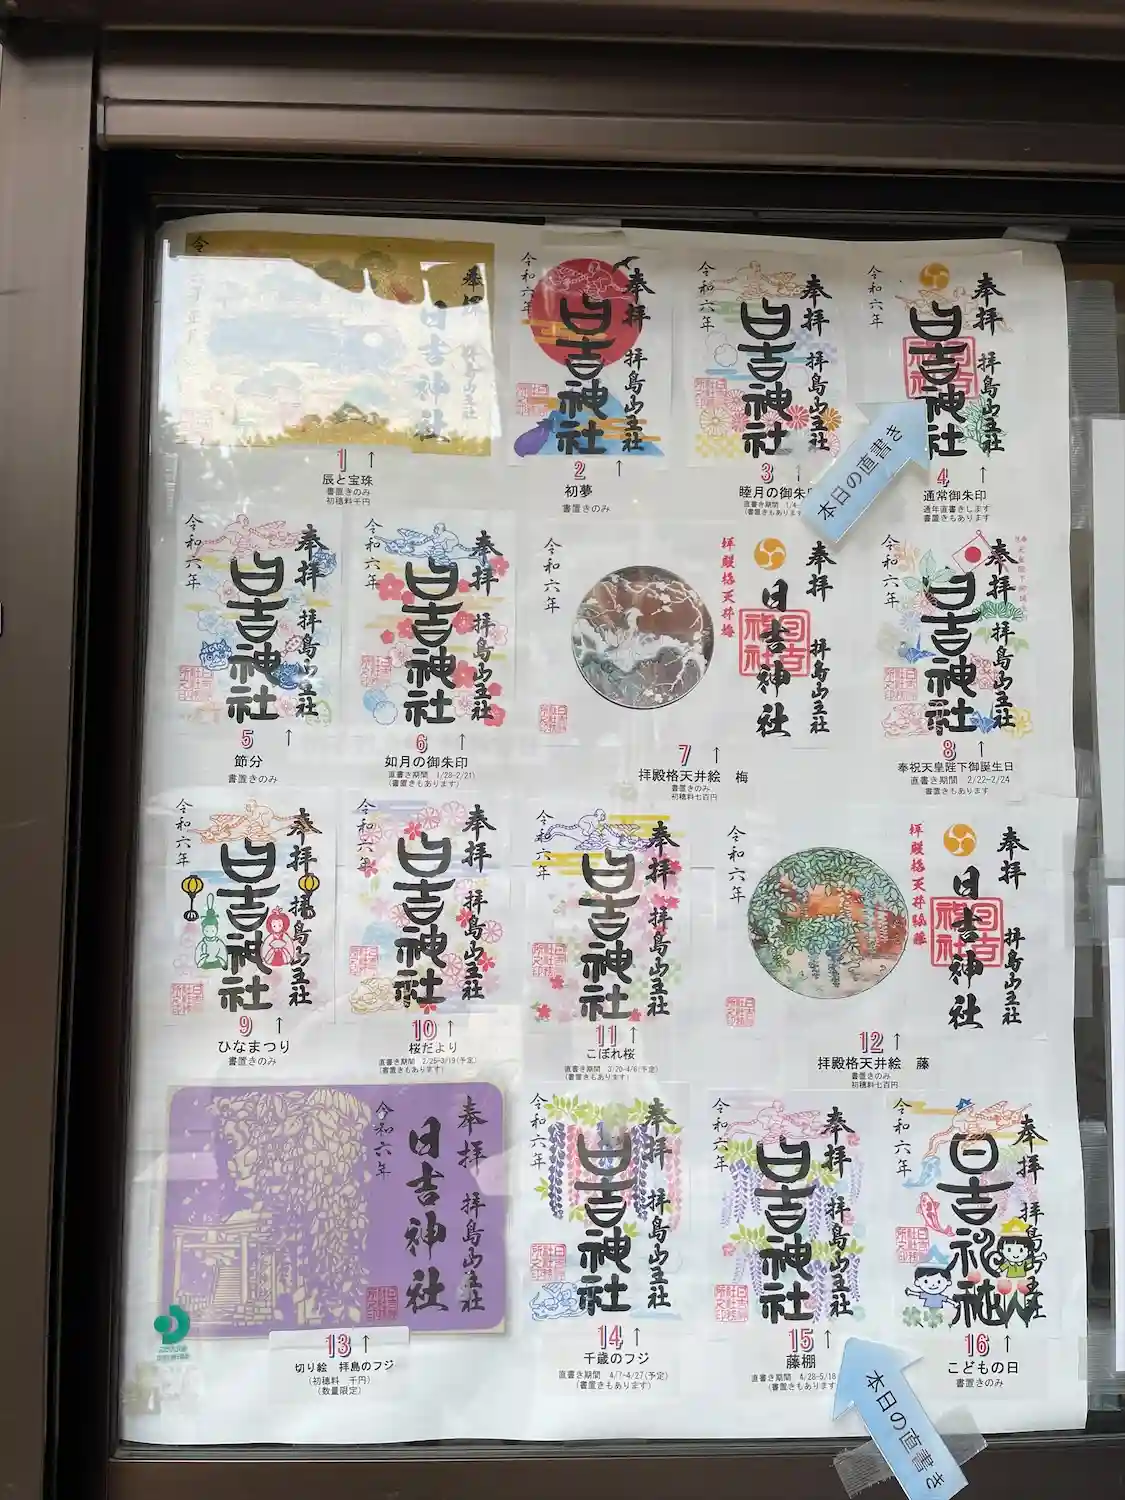 令和六年
奉拝
拝島山王社
日吉神社
1 ↑
辰と宝珠
書置きのみ
初穂料千円
令和六年
奉拝
拝島山王社
日吉神社
2 ↑
初夢
書置きのみ
令和六年
奉拝
拝島山王社
日吉神社
3 ↑
睦月の御朱印
直書き期間 1/4-
(書置きもあります
令和六年
奉拝
拝島山王社
日吉神社
4 ↑
通常御朱印
通年直書きします
書置きもあります
本日の直書き
令和六年
奉拝
拝島山王社
日吉神社
5 ↑
節分
書置きのみ
令和六年
奉拝
拝島山王社
日吉神社
6 ↑
如月の御朱印
直書き期間 1/28-2/21)
(書置きもあります)
令和六年
拝殿格天井梅
奉拝
拝島山王社
日吉神社
7 ↑
拝殿格天井絵 梅
書置きのみ
初穂料七百円
令和六年
奉拝
拝島山王社
日吉神社
8 ↑
奉祝天皇陛下御誕生日
直書き期間 2/22-2/24
書置きもあります
令和六年
奉拝
拝島山王社
日吉神社
9 ↑
ひなまつり
書置きのみ
令和六年
奉拝
拝島山王社
日吉神社
10 ↑
桜だより
直書き期間 2/25-3/19(予定)
(書置きもあります)
令和六年
奉拝
拝島山王社
日吉神社
11 ↑
こぼれ桜
直書き期間 3/20-4/6(予定)
(書置きもあります)
令和六年
奉拝
拝島山王社
日吉神社
12 ↑
拝殿格天井絵 藤
書置きのみ
初穂料七百円
令和六年
奉拝
拝島山王社
日吉神社
13 ↑
切り絵 拝島のフジ
(初穂料 千円)
(数量限定)
令和六年
奉拝
拝島山王社
日吉神社
14 ↑
千歳のフジ
直書き期間 4/7-4/27(予定)
(書置きもあります)
令和六年
奉拝
拝島山王社
日吉神社
15 ↑
藤棚
直書き期間 4/28-5/18
(書置きもあります
令和六年
奉拝
拝島山王社
日吉神社
16 ↑
こどもの日
書置きのみ
本日の直書き